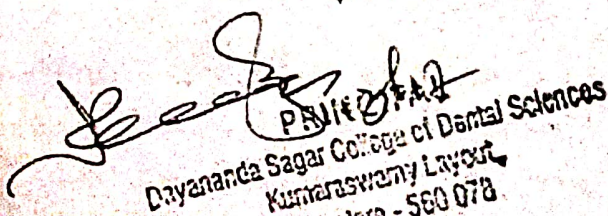 PRINCIPAL
Dayananda Sagar College of Dental Sciences
Kumaraswamy Layout,
- 560 078